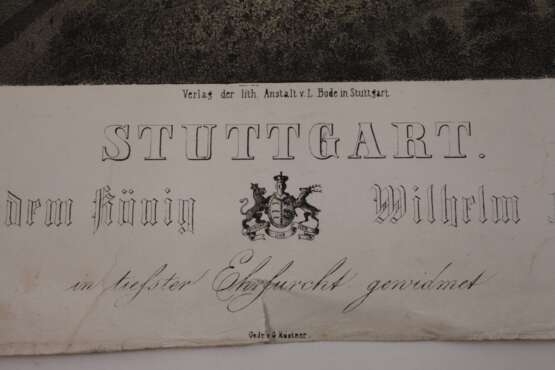 Verlag der lith. Anstalt v. L. Bode in Stuttgart.
STUTTGART.
dem König Wilhelm
in tiefster Ehrfurcht gewidmet
Gedr. v. G. Küstner.